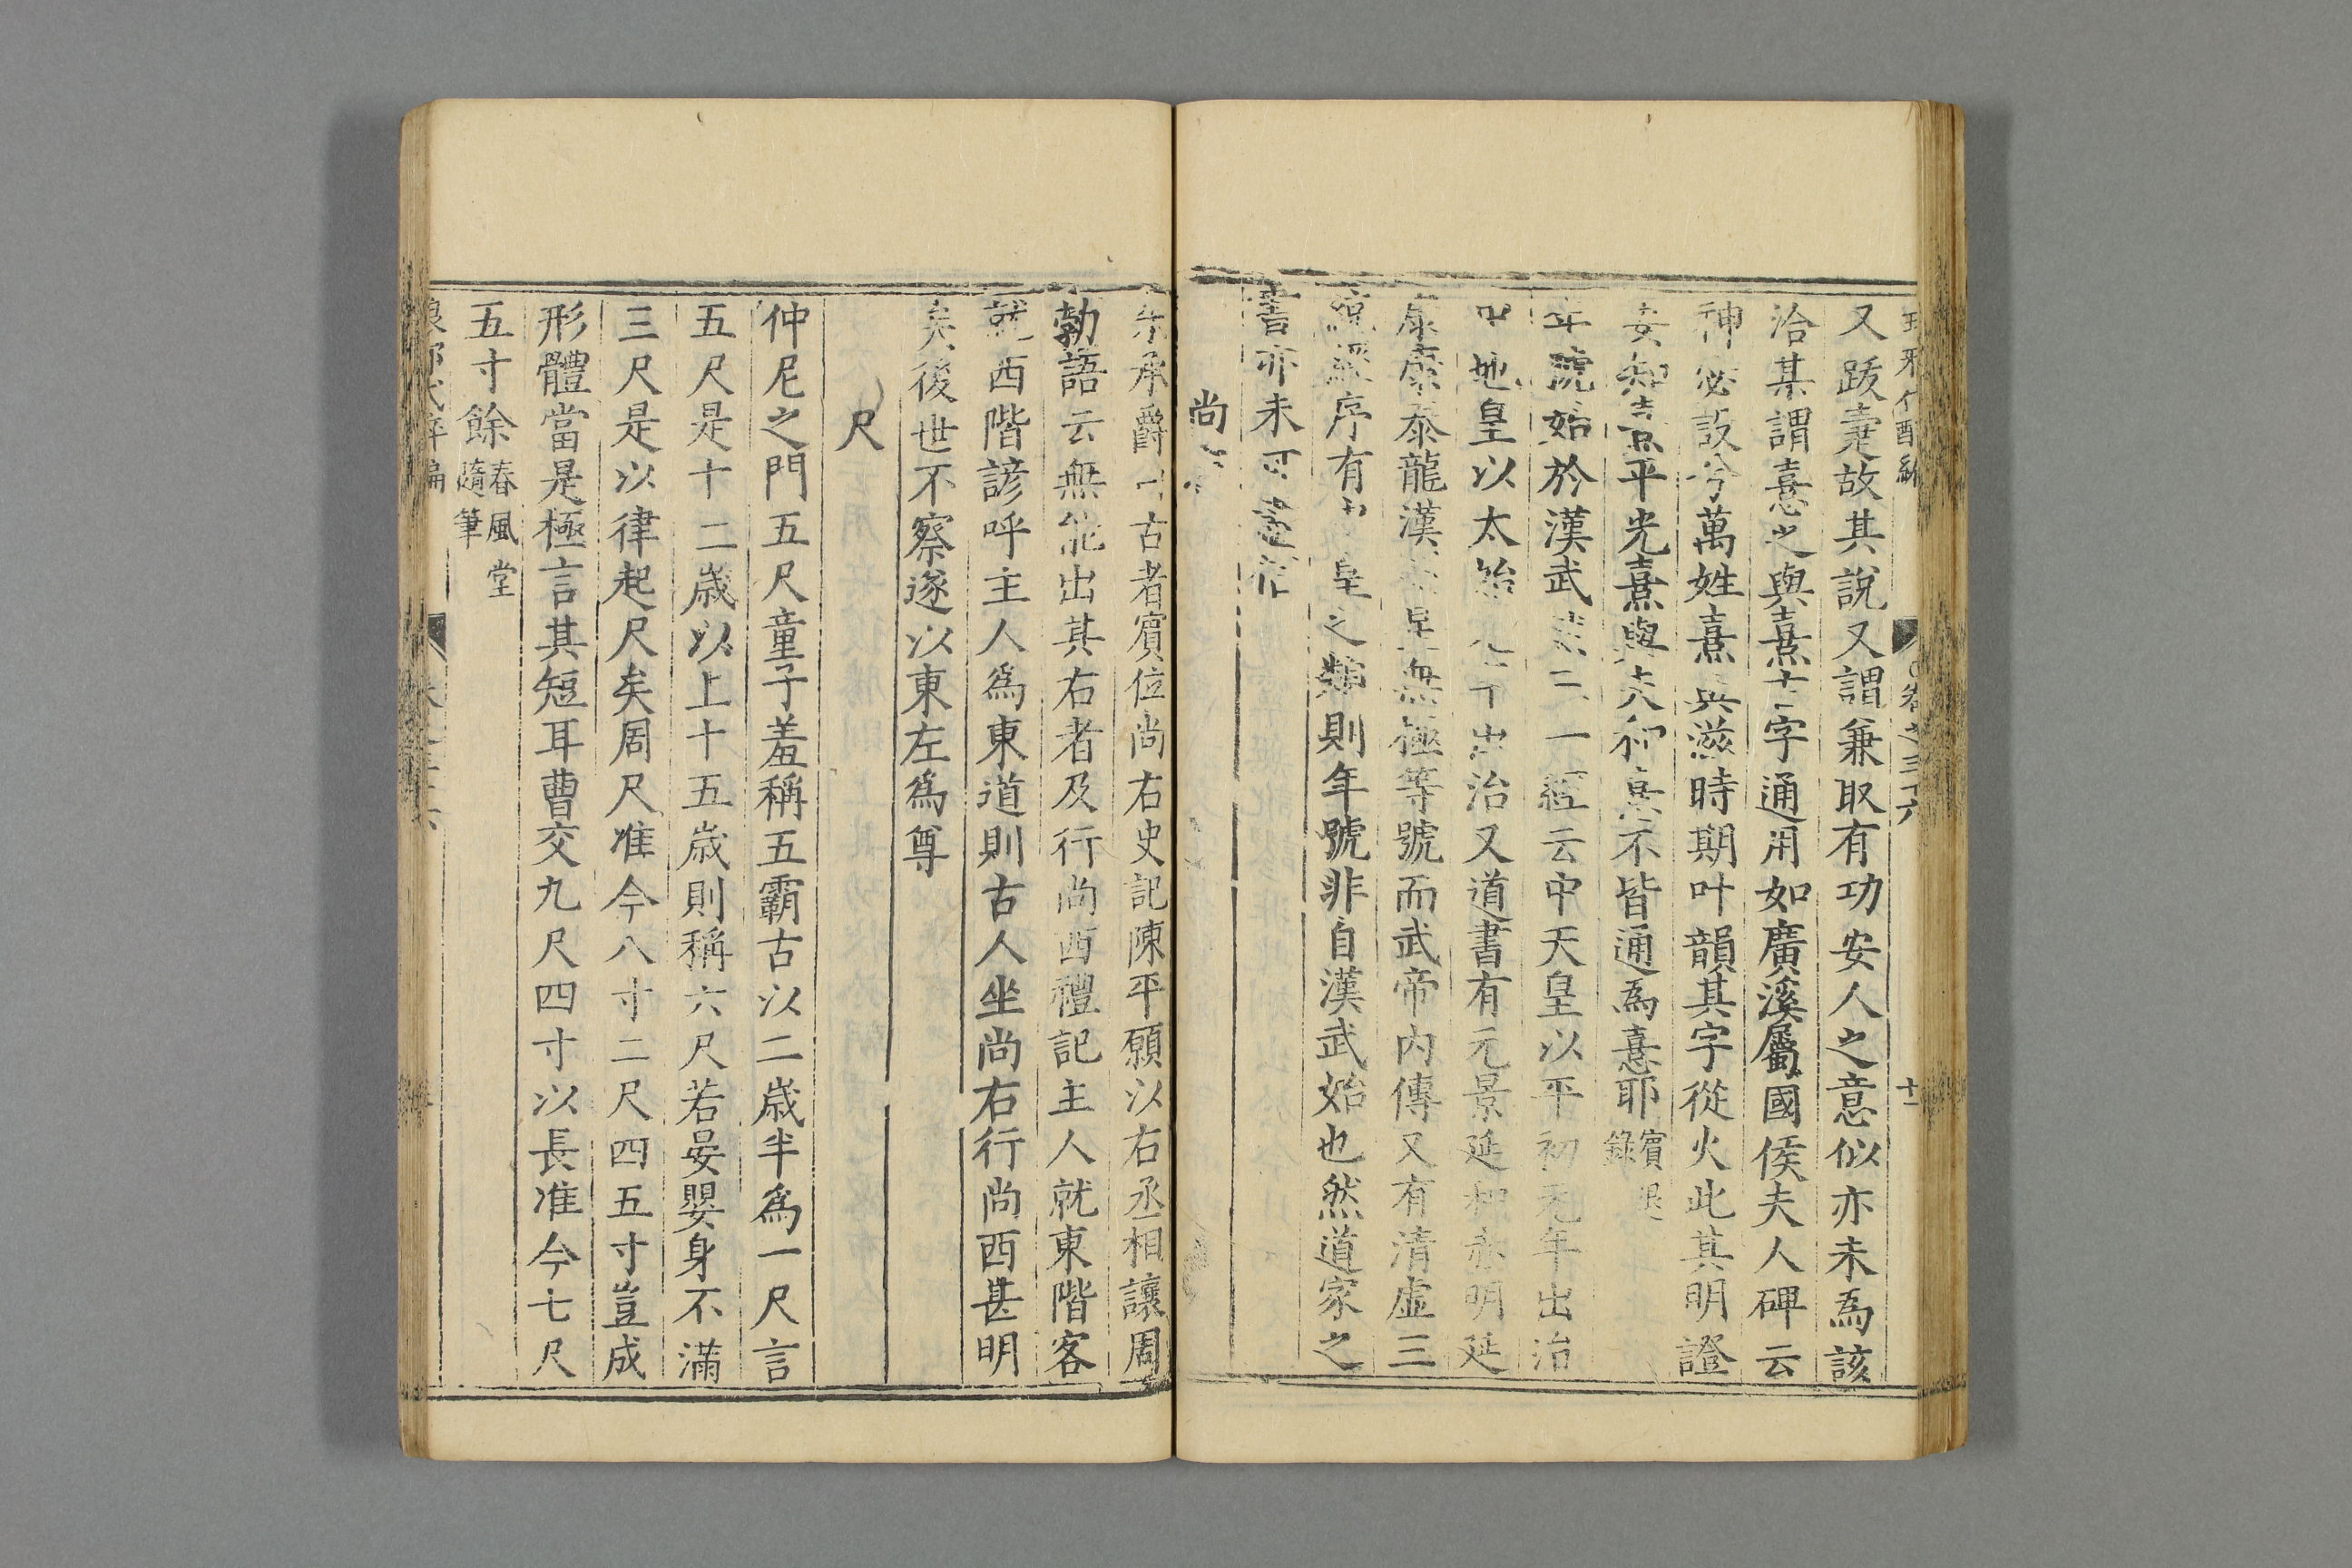 卷之三十六
十一
又跋憙故其說又謂兼取有功安人之意似亦未爲該
洽某謂憙之與熹二字通用如廣漢屬國侯夫人碑云
神宓設兮萬姓熹與滋時期叶韻其字從火此其明證
安知熹平光熹與夫和熹不皆通爲憙耶賓退錄
年號始於漢武三一經云中天皇以平初元年出治
地皇以太始元年出治又道書有元景延和赤明延
康康泰龍漢皇無極等號而武帝內傳又有清虛三
序有皇之類則年號非自漢武始也然道家之
書亦未可盡信
尚
承爵古者賓位尚右史記陳平願以右丞相讓周
勃語云無能出其右者及行尚西禮記主人就東階客
就西階諺呼主人爲東道則古人坐尚右行尚西甚明
矣後世不察遂以東左爲尊
尺
仲尼之門五尺童子羞稱五霸古以二歲半爲一尺言
五尺是十二歲以上十五歲則稱六尺若晏嬰身不滿
三尺是以律起尺矣周尺准今八寸二尺四五寸豈成
形體當是極言其短耳曹交九尺四寸以長准今七尺
五寸餘春風堂隨筆